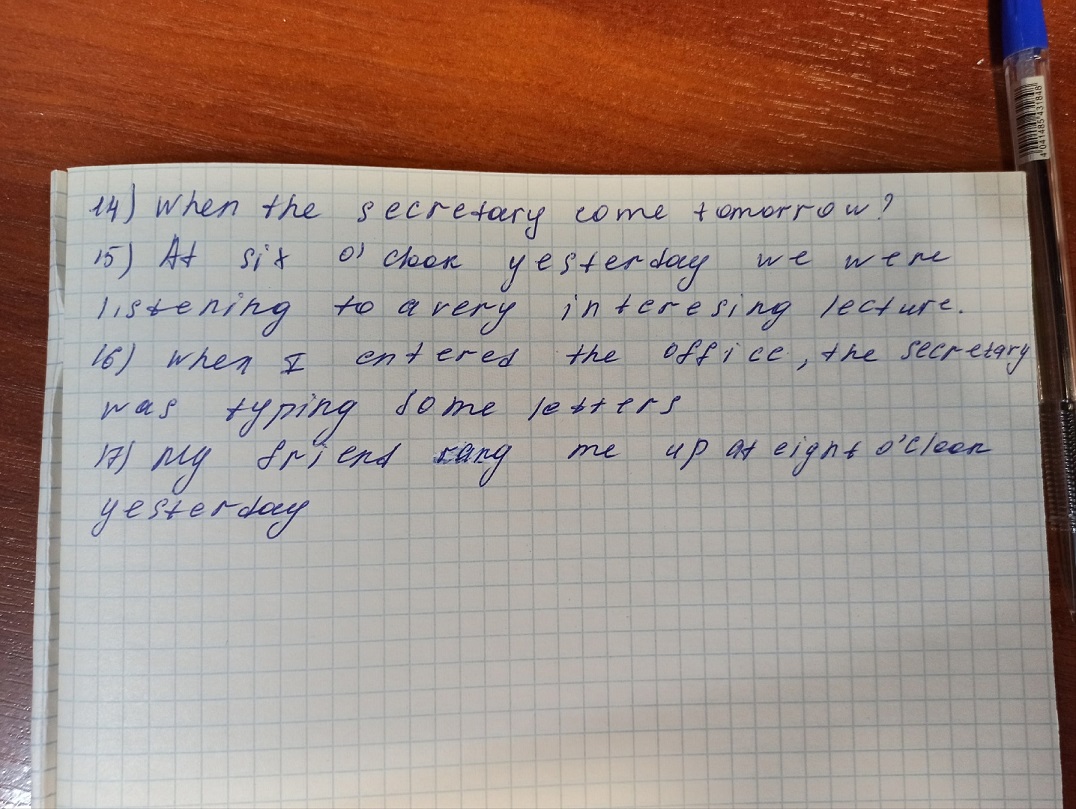 14) When the secretary come tomorrow?
15) At six o'clook yesterday we were
listening to a very interesing lecture.
16) When I entered the office, the secretary
was typing some letters
17) My friend rang me up at eight o'clook
yesterday
4 041485 431848